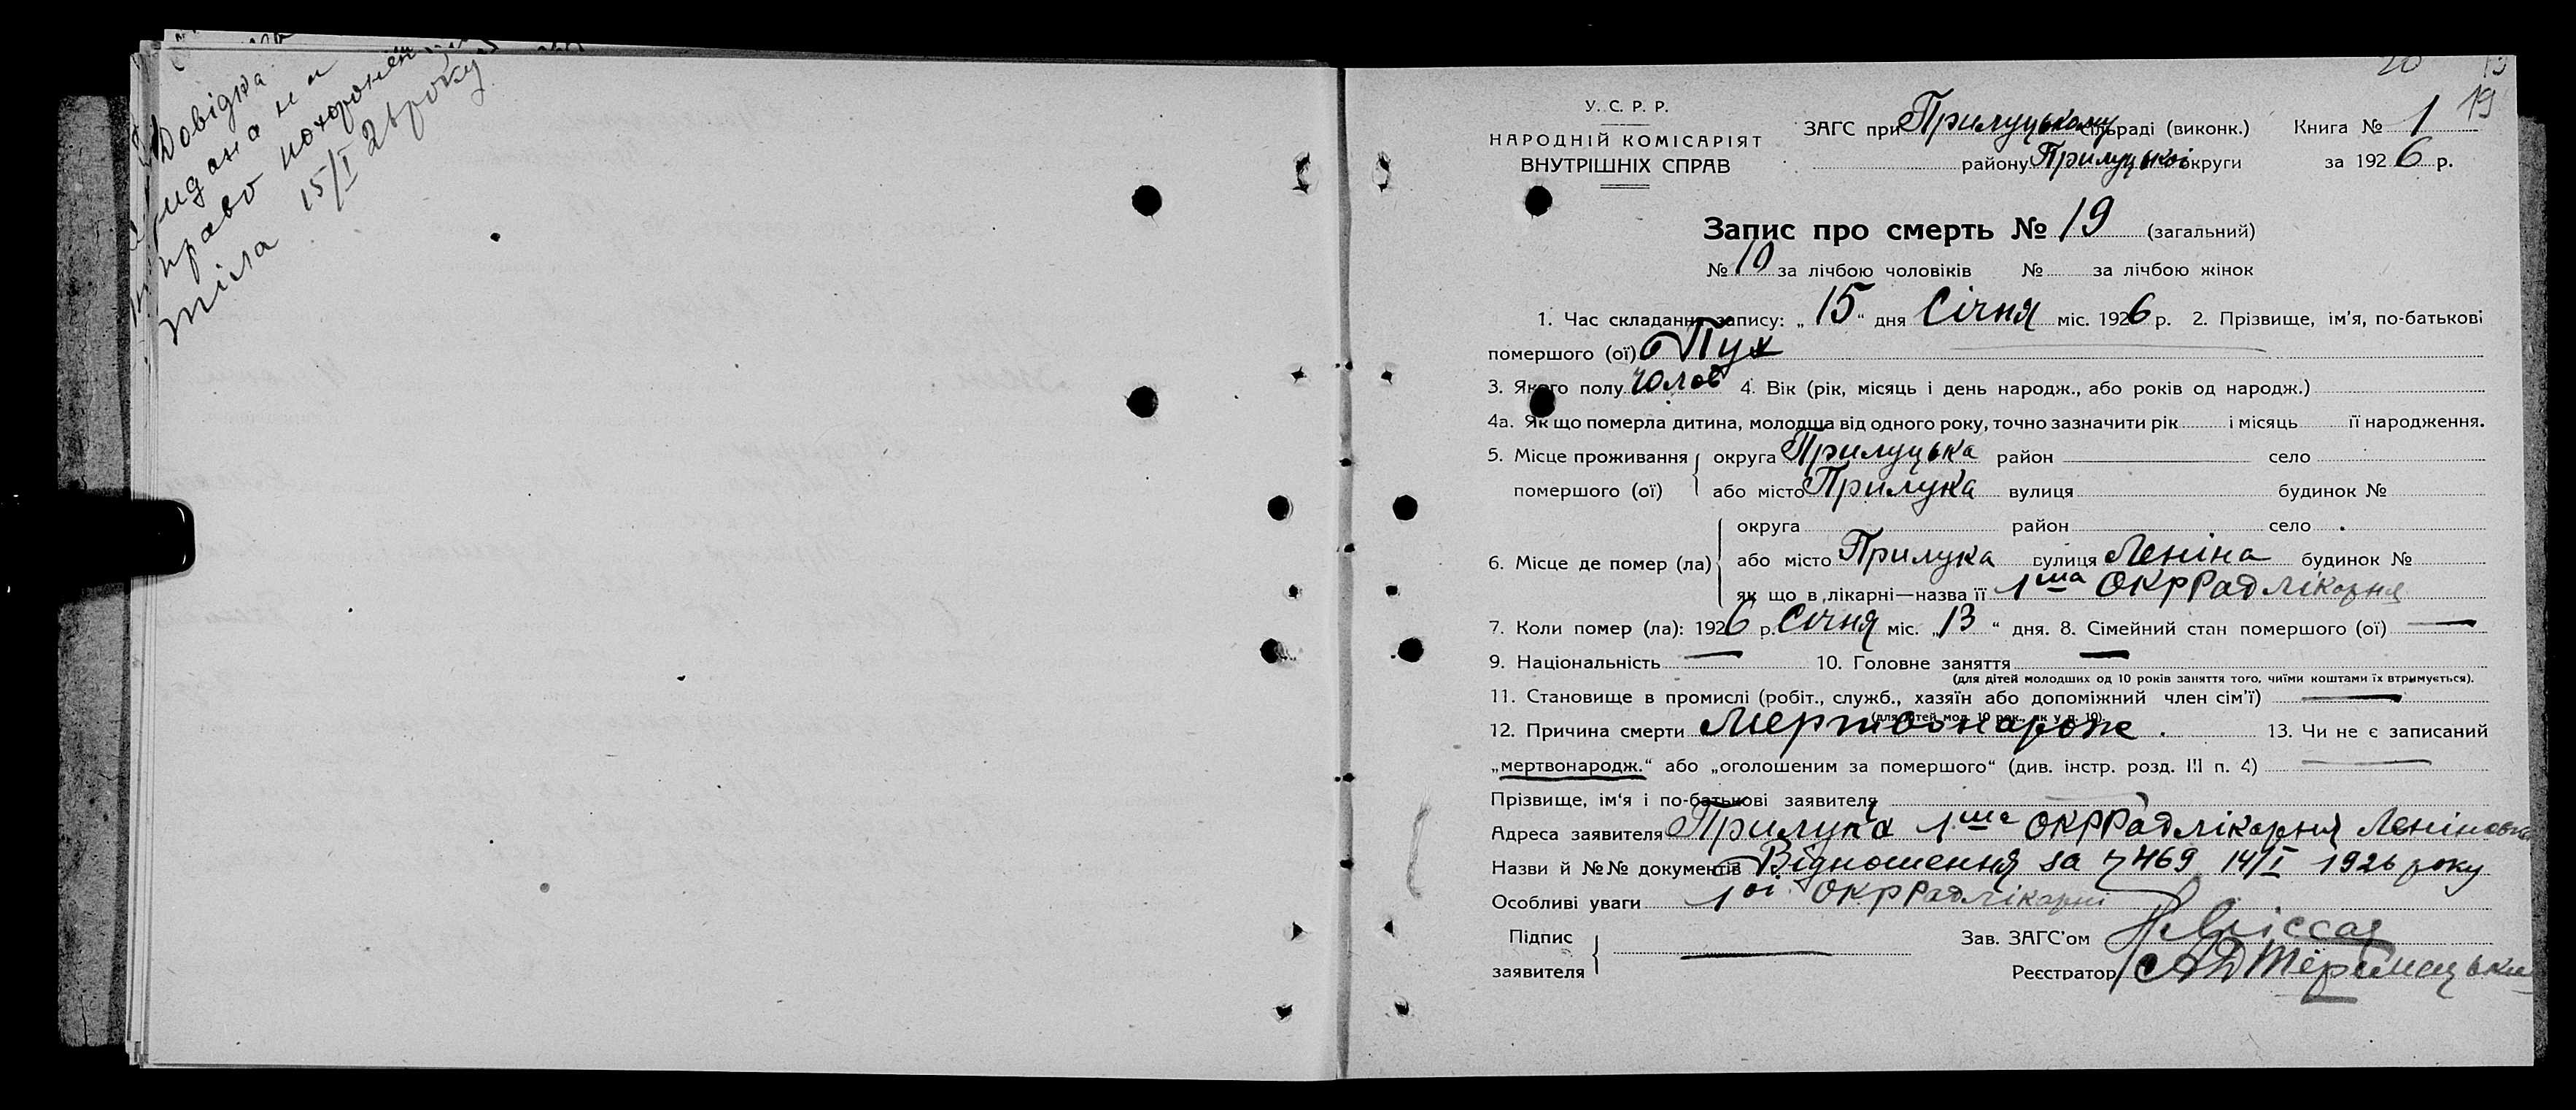 Довідка
видана на
право похорон
тіла 15/I 26 року
19
У. С. Р. Р.
НАРОДНІЙ КОМІСАРІЯТ
ВНУТРІШНІХ СПРАВ
ЗАГС при Прилуцькому сільраді (виконк.) Книга № 1
району Прилуцької округи за 1926 р.
Запис про смерть № 19 (загальний)
№ 10 за лічбою чоловіків № за лічбою жінок
1. Час складання запису: „15“ дня Січня міс. 1926 р. 2. Прізвище, ім'я, по-батькові
помершого (ої) Пух
3. Якого полу Чолов 4. Вік (рік, місяць і день народж., або років од народж.)
4а. Як що померла дитина, молодша від одного року, точно зазначити рік і місяць її народження.
5. Місце проживання помершого (ої) округа Прилуцька район село
або місто Прилука вулиця будинок №
6. Місце де помер (ла) округа район село
або місто Прилука вулиця Леніна будинок №
як що в лікарні—назва її 1ша ОКРРадлікарня
7. Коли помер (ла): 1926 р. Січня міс. „13“ дня. 8. Сімейний стан помершого (ої) —
9. Національність — 10. Головне заняття —
(для дітей молодших од 10 років заняття того, чиїми коштами їх втримується).
11. Становище в промислі (робіт., служб., хазяїн або допоміжний член сім'ї) —
(для дітей мол. 10 рок., як у п. 10).
12. Причина смерти Мертвонарож. 13. Чи не є записаний
„мертвонародж.“ або „оголошеним за помершого“ (див. інстр. розд. III п. 4) —
Прізвище, ім'я і по-батькові заявителя
Адреса заявителя Прилука 1ша ОКРРадлікарня
Назви й №№ документів Відношення за 7469 14/I 1926 року
Особливі уваги 1ої ОКРРадлікарні
Підпис заявителя —
Зав. ЗАГС'ом
Реєстратор